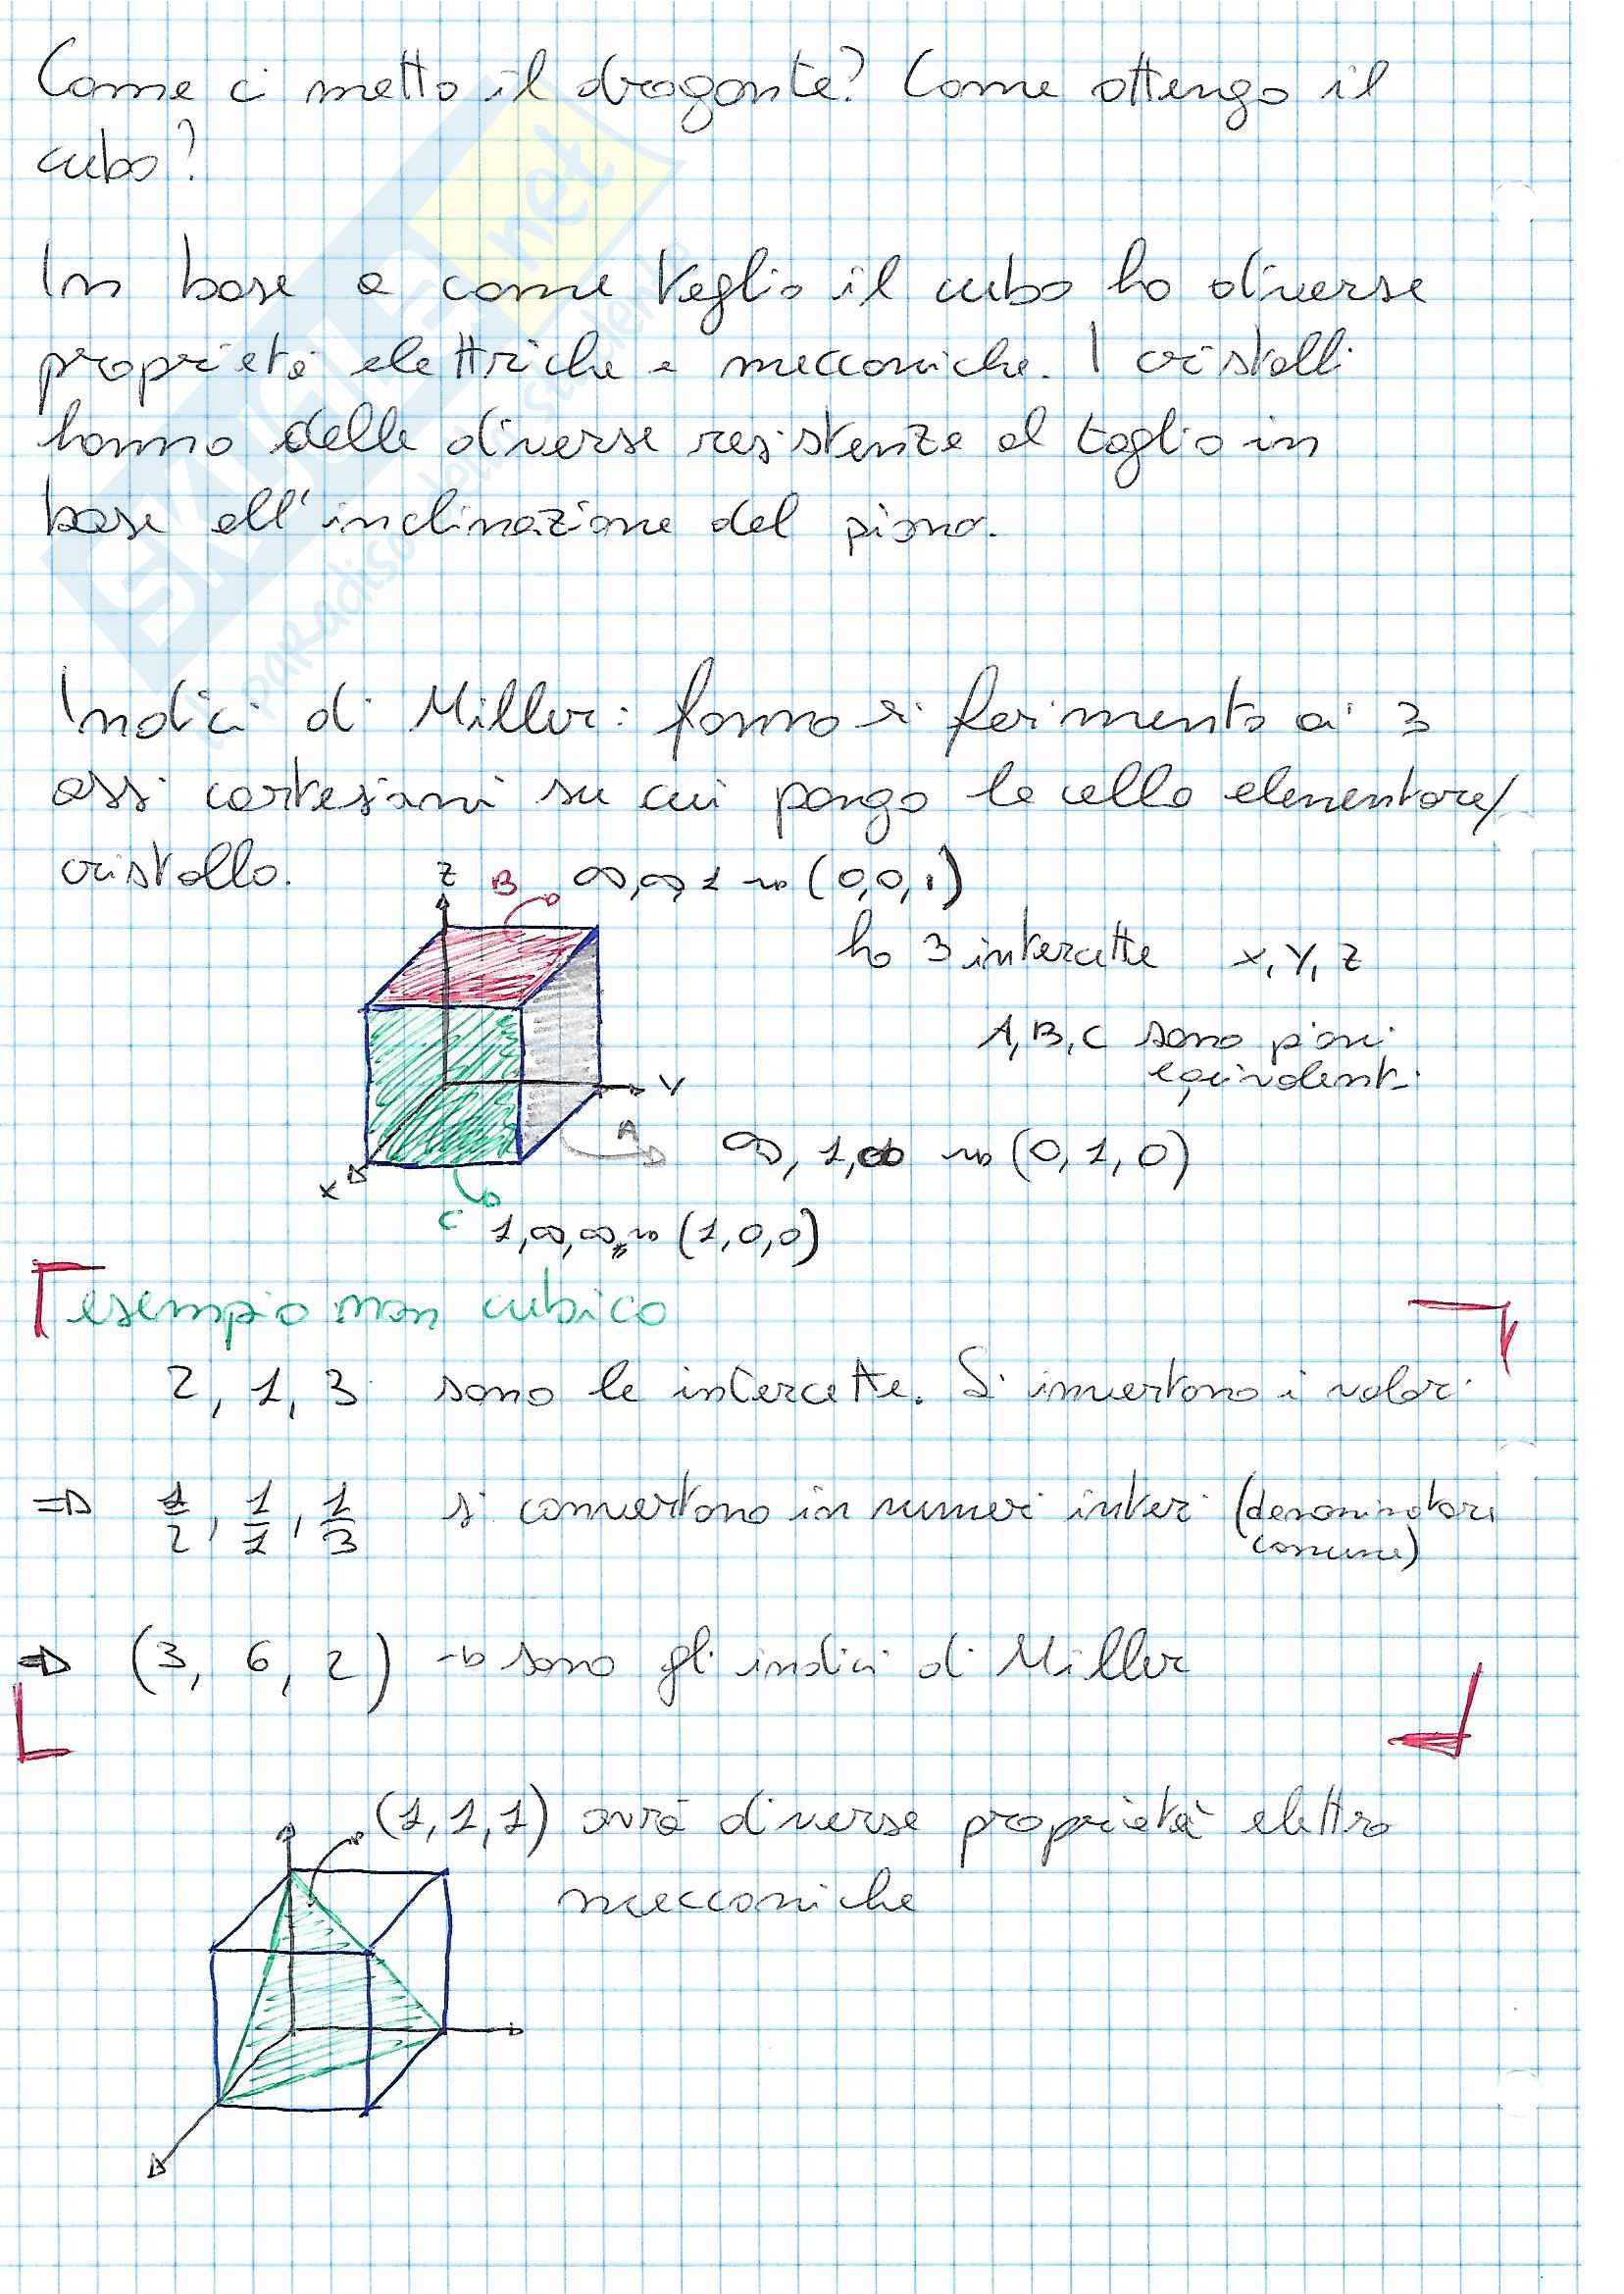 Come ci metto il drogante? Come ottengo il
cubo?
In base a come taglio il cubo ho diverse
proprietà elettriche e meccaniche. I cristalli
hanno delle diverse resistenze al taglio in
base all'inclinazione del piano.
Indici di Miller: fanno riferimento ai 3
assi cartesiani su cui pongo la cella elementare/
cristallo.
Z B ∞,∞,1 → (0,0,1)
ho 3 intercette x, Y, Z
A, B, C sono piani
equivalenti
Y
A ∞, 1, ∞ → (0, 1, 0)
X
C 1, ∞, ∞, → (1, 0, 0)
esempio non cubico
2, 1, 3 sono le intercette. Si invertono i valori
⇒ 1/2, 1/1, 1/3 si convertono in numeri interi (denominatore
comune)
⇒ (3, 6, 2) → sono gli indici di Miller
(1, 1, 1) avrà diverse proprietà elettro
meccaniche
SKUOLA.net
il paradiso dello studente